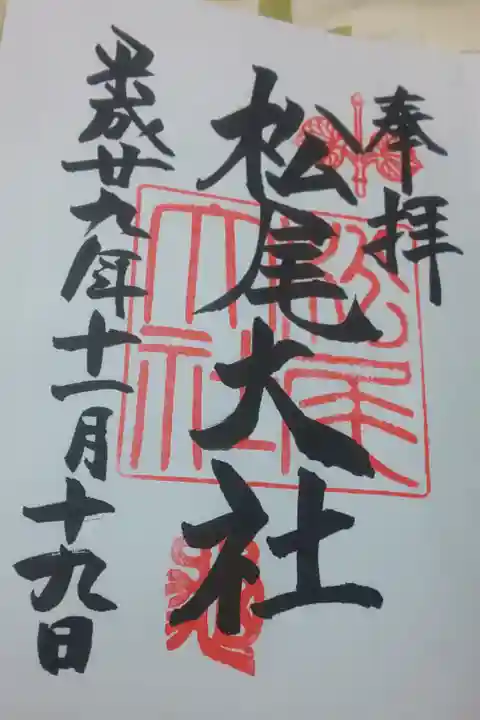 奉拝
松尾大社
平成廿九年十一月十九日
松尾
大社